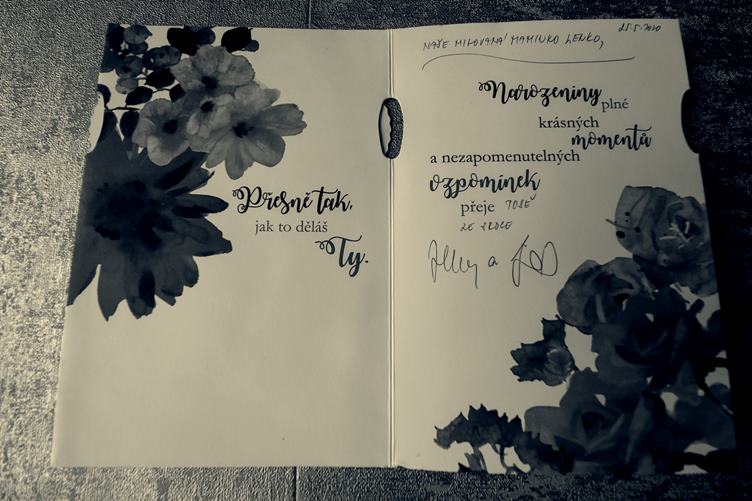 Přesně tak,
jak to děláš
Ty.
25.5.2020
NAŠE MILOVANÁ MAMINKO LENKO,
Narozeniny plné
krásných
momentů
a nezapomenutelných
vzpomínek
přeje
ZE SRDCE
a